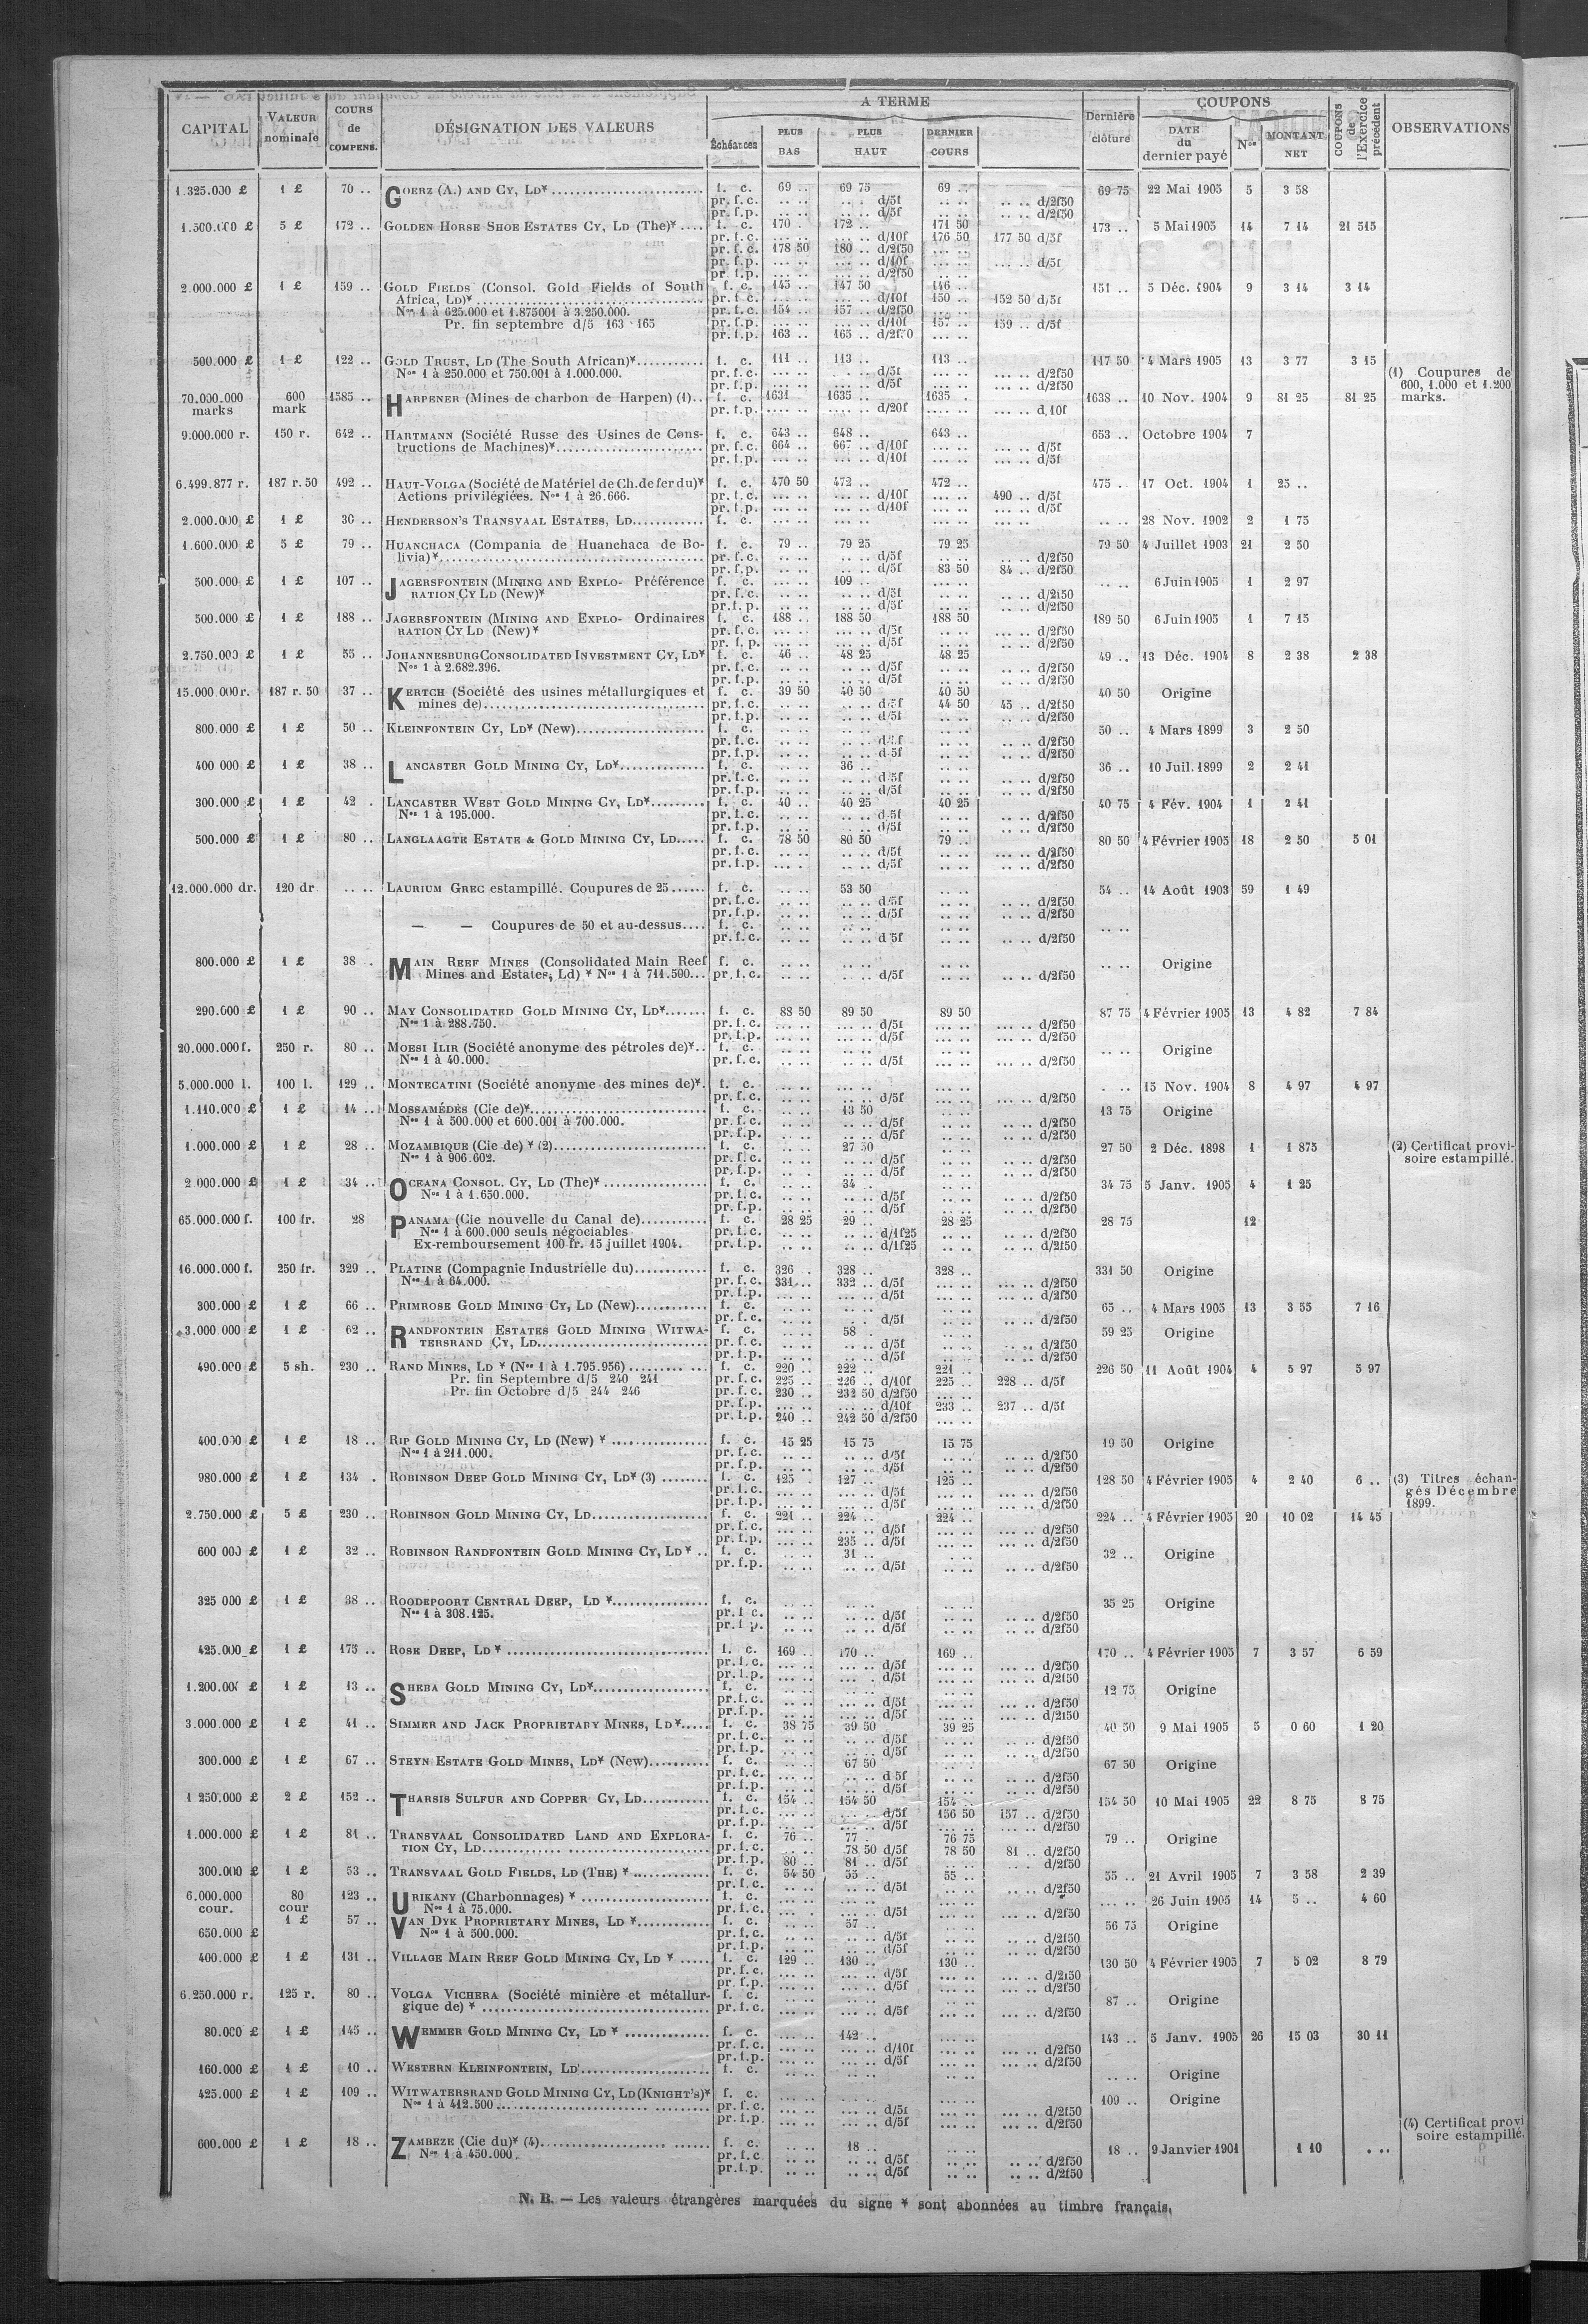 CAPITAL | VALEUR nominale | COURS de COMPENS. | DÉSIGNATION DES VALEURS | A TERME | Dernière clôture | COUPONS | COUPONS de l'Exercice précédent | OBSERVATIONS
Échéances | PLUS BAS | PLUS HAUT | DERNIER COURS | DATE du dernier payé | Nos | MONTANT NET
1.325.000 £ | 1 £ | 70 .. | GOERZ (A.) AND CY, LD* | f. c. | 69 .. | 69 75 | 69 .. | 69 75 | 22 Mai 1905 | 5 | 3 58
pr. f.c. | d/5f | d/2f50
pr. f.p. | d/5f | d/2f50
1.500.000 £ | 5 £ | 172 .. | GOLDEN HORSE SHOE ESTATES CY, LD (The)* | f. c. | 170 . | 172 .. | 171 50 | 173 .. | 5 Mai 1905 | 14 | 7 14 | 21 515
pr. f.c. | d/10f | 176 50 | 177 50 d/5f
pr. f.c. | 178 50 | 180 .. d/2f50
pr. f.p. | d/10f | d/5f
pr. f.p. | d/2f50
2.000.000 £ | 1 £ | 159 .. | GOLD FIELDS (Consol. Gold Fields of South | f. c. | 145 .. | 147 50 | 146 .. | 151 .. | 5 Déc. 1904 | 9 | 3 14 | 3 14
Africa, LD)* | pr. f.c. | d/10f | 150 .. | 152 50 d/5f
Nos 1 à 625.000 et 1.875001 à 3.250.000. | pr. f.c. | 154 .. | 157 .. d/2f50
Pr. fin septembre d/5 163 165 | pr. f.p. | d/10f | 157 .. | 159 .. d/5f
pr. f.p. | 163 .. | 165 ..
500.000 £ | 1 £ | 122 .. | GOLD TRUST, LD (The South African)* | f. c. | 111 .. | 113 .. | 113 .. | 117 50 | 4 Mars 1905 | 13 | 3 77 | 3 15
Nos 1 à 250.000 et 750.001 à 1.000.000. | pr. f.c. | d/5f | d/2f50 | (1) Coupures de
pr. f.p. | d/5f | d/2f50 | 600, 1.000 et 1.200
70.000.000 marks | 600 mark | 1585 .. | HARPENER (Mines de charbon de Harpen) (1) | f. c. | 1631 | 1635 .. | 1635 . | 1638 .. | 10 Nov. 1904 | 9 | 81 25 | 81 25 | marks.
pr. f.p. | d/20f | d/10f
9.000.000 r. | 150 r. | 642 .. | HARTMANN (Société Russe des Usines de Cons- | f. c. | 643 .. | 648 .. | 643 .. | 653 .. | Octobre 1904 | 7
tructions de Machines)* | pr. f.c. | 664 .. | 667 .. d/10f | d/5f
pr. f.p. | d/10f | d/5f
6.499.877 r. | 187 r. 50 | 492 .. | HAUT-VOLGA (Société de Matériel de Ch. de fer du)* | f. c. | 470 50 | 472 .. | 472 .. | 475 . | 17 Oct. 1904 | 1 | 25 ..
Actions privilégiées. Nos 1 à 26.666. | pr. f.c. | d/10f | 490 .. d/5f
pr. f.p. | d/10f | d/5f
2.000.000 £ | 1 £ | 30 .. | HENDERSON'S TRANSVAAL ESTATES, LD | f. c. | 28 Nov. 1902 | 2 | 1 75
1.600.000 £ | 5 £ | 79 .. | HUANCHACA (Compania de Huanchaca de Bo- | f. c. | 79 .. | 79 25 | 79 25 | 79 50 | 4 Juillet 1903 | 21 | 2 50
livia)* | pr. f.c. | d/5f | d/2f50
pr. f.p. | d/5f | 83 50 | 84 .. d/2f50
500.000 £ | 1 £ | 107 .. | JAGERSFONTEIN (MINING AND EXPLO- Préférence | f. c. | 109 | 6 Juin 1905 | 1 | 2 97
RATION CY LD (New)* | pr. f.c. | d/5f | d/2f50
pr. f.p. | d/5f | d/2f50
500.000 £ | 1 £ | 188 .. | JAGERSFONTEIN (MINING AND EXPLO- Ordinaires | f. c. | 188 .. | 188 50 | 188 50 | 189 50 | 6 Juin 1905 | 1 | 7 15
RATION CY LD (New)* | pr. f.c. | d/5f | d/2f50
pr. f.p. | d/5f | d/2f50
2.750.000 £ | 1 £ | 55 .. | JOHANNESBURG CONSOLIDATED INVESTMENT CY, LD* | f. c. | 46 .. | 48 25 | 48 25 | 49 .. | 13 Déc. 1904 | 8 | 2 38 | 2 38
Nos 1 à 2.682.396. | pr. f.c. | d/5f | d/2f50
pr. f.p. | d/5f | d/2f50
15.000.000 r. | 187 r. 50 | 37 .. | KERTCH (Société des usines métallurgiques et | f. c. | 39 50 | 40 50 | 40 50 | 40 50 | Origine
mines de) | pr. f.c. | d/5f | 44 50 | 45 .. d/2f50
pr. f.p. | d/5f | d/2f50
800.000 £ | 1 £ | 50 .. | KLEINFONTEIN CY, LD* (New) | f. c. | 50 .. | 4 Mars 1899 | 3 | 2 50
pr. f.c. | d/5f | d/2f50
pr. f.p. | d/5f | d/2f50
400 000 £ | 1 £ | 38 .. | LANCASTER GOLD MINING CY, LD* | f. c. | 36 .. | 36 .. | 10 Juil. 1899 | 2 | 2 41
pr. f.c. | d/5f | d/2f50
pr. f.p. | d/5f | d/2f50
300.000 £ | 1 £ | 42 . | LANCASTER WEST GOLD MINING CY, LD* | f. c. | 40 .. | 40 25 | 40 25 | 40 75 | 4 Fév. 1904 | 1 | 2 41
Nos 1 à 195.000. | pr. f.c. | d/5f | d/2f50
pr. f.p. | d/5f | d/2f50
500.000 £ | 1 £ | 80 .. | LANGLAAGTE ESTATE & GOLD MINING CY, LD | f. c. | 78 50 | 80 50 | 79 .. | 80 50 | 4 Février 1905 | 18 | 2 50 | 5 01
pr. f.c. | d/5f | d/2f50
pr. f.p. | d/5f | d/2f50
12.000.000 dr. | 120 dr | .. .. | LAURIUM GREC estampillé. Coupures de 25 | f. c. | 53 50 | 54 .. | 14 Août 1903 | 59 | 1 49
pr. f.c. | d/5f | d/2f50
pr. f.p. | d/5f | d/2f50
— — Coupures de 50 et au-dessus | f. c.
pr. f.c. | d 5f | d/2f50
800.000 £ | 1 £ | 38 . | MAIN REEF MINES (Consolidated Main Reef | f. c. | Origine
Mines and Estates, Ld) * Nos 1 à 711.500 | pr. f.c. | d/5f | d/2f50
290.000 £ | 1 £ | 90 .. | MAY CONSOLIDATED GOLD MINING CY, LD* | f. c. | 88 50 | 89 50 | 89 50 | 87 75 | 4 Février 1905 | 13 | 4 82 | 7 84
Nos 1 à 288.750. | pr. f.c. | d/5f | d/2f50
pr. f.p. | d/5f | d/2f50
20.000.000 f. | 250 r. | 80 .. | MOESI ILIR (Société anonyme des pétroles de)* | f. c. | Origine
Nos 1 à 40.000. | pr. f.c. | d/5f | d/2f50
5.000.000 l. | 100 l. | 129 .. | MONTECATINI (Société anonyme des mines de)* | f. c. | 15 Nov. 1904 | 8 | 4 97 | 4 97
pr. f.c. | d/5f | d/2f50
1.110.000 £ | 1 £ | 14 .. | MOSSAMÉDÈS (Cie de)* | f. c. | 13 50 | 13 75 | Origine
Nos 1 à 500.000 et 600.001 à 700.000. | pr. f.c. | d/5f | d/2f50
pr. f.p. | d/5f | d/2f50
1.000.000 £ | 1 £ | 28 .. | MOZAMBIQUE (Cie de) * (2) | f. c. | 27 50 | 27 50 | 2 Déc. 1898 | 1 | 1 875 | (2) Certificat provi-
Nos 1 à 906.602. | pr. f.c. | d/5f | d/2f50 | soire estampillé.
pr. f.p. | d/5f | d/2f50
2 000.000 £ | 1 £ | 34 .. | OCEANA CONSOL. CY, LD (The)* | f. c. | 34 .. | 34 75 | 5 Janv. 1905 | 4 | 1 25
Nos 1 à 1.650.000. | pr. f.c. | d/5f | d/2f50
pr. f.p. | d/5f | d/2f50
65.000.000 f. | 100 fr. | 28 | PANAMA (Cie nouvelle du Canal de) | f. c. | 28 25 | 29 .. | 28 25 | 28 75 | 12
Nos 1 à 600.000 seuls négociables | pr. f.c. | d/1f25 | d/2f50
Ex-remboursement 100 fr. 15 juillet 1904. | pr. f.p. | d/1f25 | d/2f50
16.000.000 f. | 250 fr. | 329 .. | PLATINE (Compagnie Industrielle du) | f. c. | 326 . | 328 .. | 328 .. | 331 50 | Origine
Nos 1 à 64.000. | pr. f.c. | 331 .. | 332 .. d/5f | d/2f50
pr. f.p. | d/5f | d/2f50
300.000 £ | 1 £ | 66 .. | PRIMROSE GOLD MINING CY, LD (New) | f. c. | 65 .. | 4 Mars 1905 | 13 | 3 55 | 7 16
pr. f.c. | d/5f | d/2f50
3.000 000 £ | 1 £ | 62 .. | RANDFONTEIN ESTATES GOLD MINING WITWA- | f. c. | 58 . | 59 25 | Origine
TERSRAND CY, LD | pr. f.c. | d/5f | d/2f50
pr. f.p. | d/5f | d/2f50
490.000 £ | 5 sh. | 230 .. | RAND MINES, LD * (Nos 1 à 1.795.956) | f. c. | 220 .. | 222 .. | 221 .. | 226 50 | 11 Août 1904 | 4 | 5 97 | 5 97
Pr. fin Septembre d/5 240 241 | pr. f.c. | 225 .. | 226 .. d/10f | 225 .. | 228 .. d/5f
Pr. fin Octobre d/5 244 246 | pr. f.c. | 230 .. | 232 50 d/2f50
pr. f.p. | d/10f | 233 .. | 237 .. d/5f
pr. f.p. | 240 .. | 242 50 d/2f50
400.000 £ | 1 £ | 18 .. | RIP GOLD MINING CY, LD (New) * | f. c. | 15 25 | 15 75 | 15 75 | 19 50 | Origine
Nos 1 à 211.000. | pr. f.c. | d/5f | d/2f50
pr. f.p. | d/5f | d/2f50
980.000 £ | 1 £ | 134 . | ROBINSON DEEP GOLD MINING CY, LD* (3) | f. c. | 125 . | 127 .. | 125 .. | 128 50 | 4 Février 1905 | 4 | 2 40 | 6 .. | (3) Titres échan-
pr. f.c. | d/5f | d/2f50 | gés Décembre
pr. f.p. | d/5f | d/2f50 | 1899.
2.750.000 £ | 5 £ | 230 .. | ROBINSON GOLD MINING CY, LD | f. c. | 221 .. | 224 .. | 224 .. | 224 .. | 4 Février 1905 | 20 | 10 02 | 14 45
pr. f.c. | d/5f | d/2f50
pr. f.p. | 235 .. d/5f | d/2f50
600 000 £ | 1 £ | 32 .. | ROBINSON RANDFONTEIN GOLD MINING CY, LD * | f. c. | 31 .. | 32 .. | Origine
pr. f.p. | d/5f | d/2f50
325 000 £ | 1 £ | 38 .. | ROODEPOORT CENTRAL DEEP, LD * | f. c. | 35 25 | Origine
Nos 1 à 308.125. | pr. f.c. | d/5f | d/2f50
pr. f.p. | d/5f | d/2f50
425.000 £ | 1 £ | 175 .. | ROSE DEEP, LD * | f. c. | 169 .. | 170 .. | 169 .. | 170 .. | 4 Février 1905 | 7 | 3 57 | 6 59
pr. f.c. | d/5f | d/2f50
pr. f.p. | d/5f | d/2f50
1.200.000 £ | 1 £ | 13 .. | SHEBA GOLD MINING CY, LD* | f. c. | 12 75 | Origine
pr. f.c. | d/5f | d/2f50
pr. f.p. | d/5f | d/2f50
3.000.000 £ | 1 £ | 41 .. | SIMMER AND JACK PROPRIETARY MINES, LD* | f. c. | 38 75 | 39 50 | 39 25 | 40 50 | 9 Mai 1905 | 5 | 0 60 | 1 20
pr. f.c. | d/5f | d/2f50
pr. f.p. | d/5f | d/2f50
300.000 £ | 1 £ | 67 .. | STEYN ESTATE GOLD MINES, LD* (New) | f. c. | 67 50 | 67 50 | Origine
pr. f.c. | d 5f | d/2f50
pr. f.p. | d/5f | d/2f50
1 250.000 £ | 2 £ | 152 .. | THARSIS SULFUR AND COPPER CY, LD | f. c. | 154 .. | 154 50 | 154 .. | 154 50 | 10 Mai 1905 | 22 | 8 75 | 8 75
pr. f.c. | d/5f | 156 50 | 157 .. d/2f50
pr. f.p. | d/5f | d/2f50
1.000.000 £ | 1 £ | 81 .. | TRANSVAAL CONSOLIDATED LAND AND EXPLORA- | f. c. | 76 .. | 77 . | 76 75 | 79 .. | Origine
TION CY, LD | pr. f.c. | 78 50 d/5f | 78 50 | 81 .. d/2f50
pr. f.p. | 80 .. | 81 .. d/5f | d/2f50
300.000 £ | 1 £ | 53 .. | TRANSVAAL GOLD FIELDS, LD (THE) * | f. c. | 54 50 | 55 .. | 55 .. | 55 .. | 21 Avril 1905 | 7 | 3 58 | 2 39
pr. f.c. | d/5f | d/2f50
6.000.000 cour. | 80 cour | 123 .. | URIKANY (Charbonnages) * | f. c. | 26 Juin 1905 | 14 | 5 .. | 4 60
Nos 1 à 75.000. | pr. f.c. | d/5f | d/2f50
650.000 £ | 1 £ | 57 .. | VAN DYK PROPRIETARY MINES, LD * | f. c. | 57 .. | 56 75 | Origine
Nos 1 à 500.000. | pr. f.c. | d/5f | d/2f50
pr. f.p. | d/5f | d/2f50
400.000 £ | 1 £ | 131 .. | VILLAGE MAIN REEF GOLD MINING CY, LD * | f. c. | 129 .. | 130 .. | 130 .. | 130 50 | 4 Février 1905 | 7 | 5 02 | 8 79
pr. f.c. | d/5f | d/2f50
pr. f.p. | d/5f | d/2f50
6.250.000 r. | 125 r. | 80 .. | VOLGA VICHERA (Société minière et métallur- | f. c. | 87 .. | Origine
gique de) * | pr. f.c. | d/5f | d/2f50
80.000 £ | 1 £ | 145 .. | WEMMER GOLD MINING CY, LD * | f. c. | 142 .. | 143 .. | 5 Janv. 1905 | 26 | 15 03 | 30 11
pr. f.c. | d/10f | d/2f50
pr. f.p. | d/5f | d/2f50
160.000 £ | 1 £ | 10 .. | WESTERN KLEINFONTEIN, LD | f. c. | Origine
425.000 £ | 1 £ | 109 .. | WITWATERSRAND GOLD MINING CY, LD (KNIGHT'S)* | f. c. | 109 .. | Origine
Nos 1 à 412.500 | pr. f.c. | d/5f | d/2f50
pr. f.p. | d/5f | d/2f50 | (4) Certificat provi
600.000 £ | 1 £ | 18 .. | ZAMBEZE (Cie du)* (4) | f. c. | 18 .. | 18 .. | 9 Janvier 1901 | 1 10 | . .. | soire estampillé.
Nos 1 à 450.000. | pr. f.c | d/5f | d/2f50
pr. f.p. | d/5f | d/2f50
N. B. — Les valeurs étrangères marquées du signe * sont abonnées au timbre français.